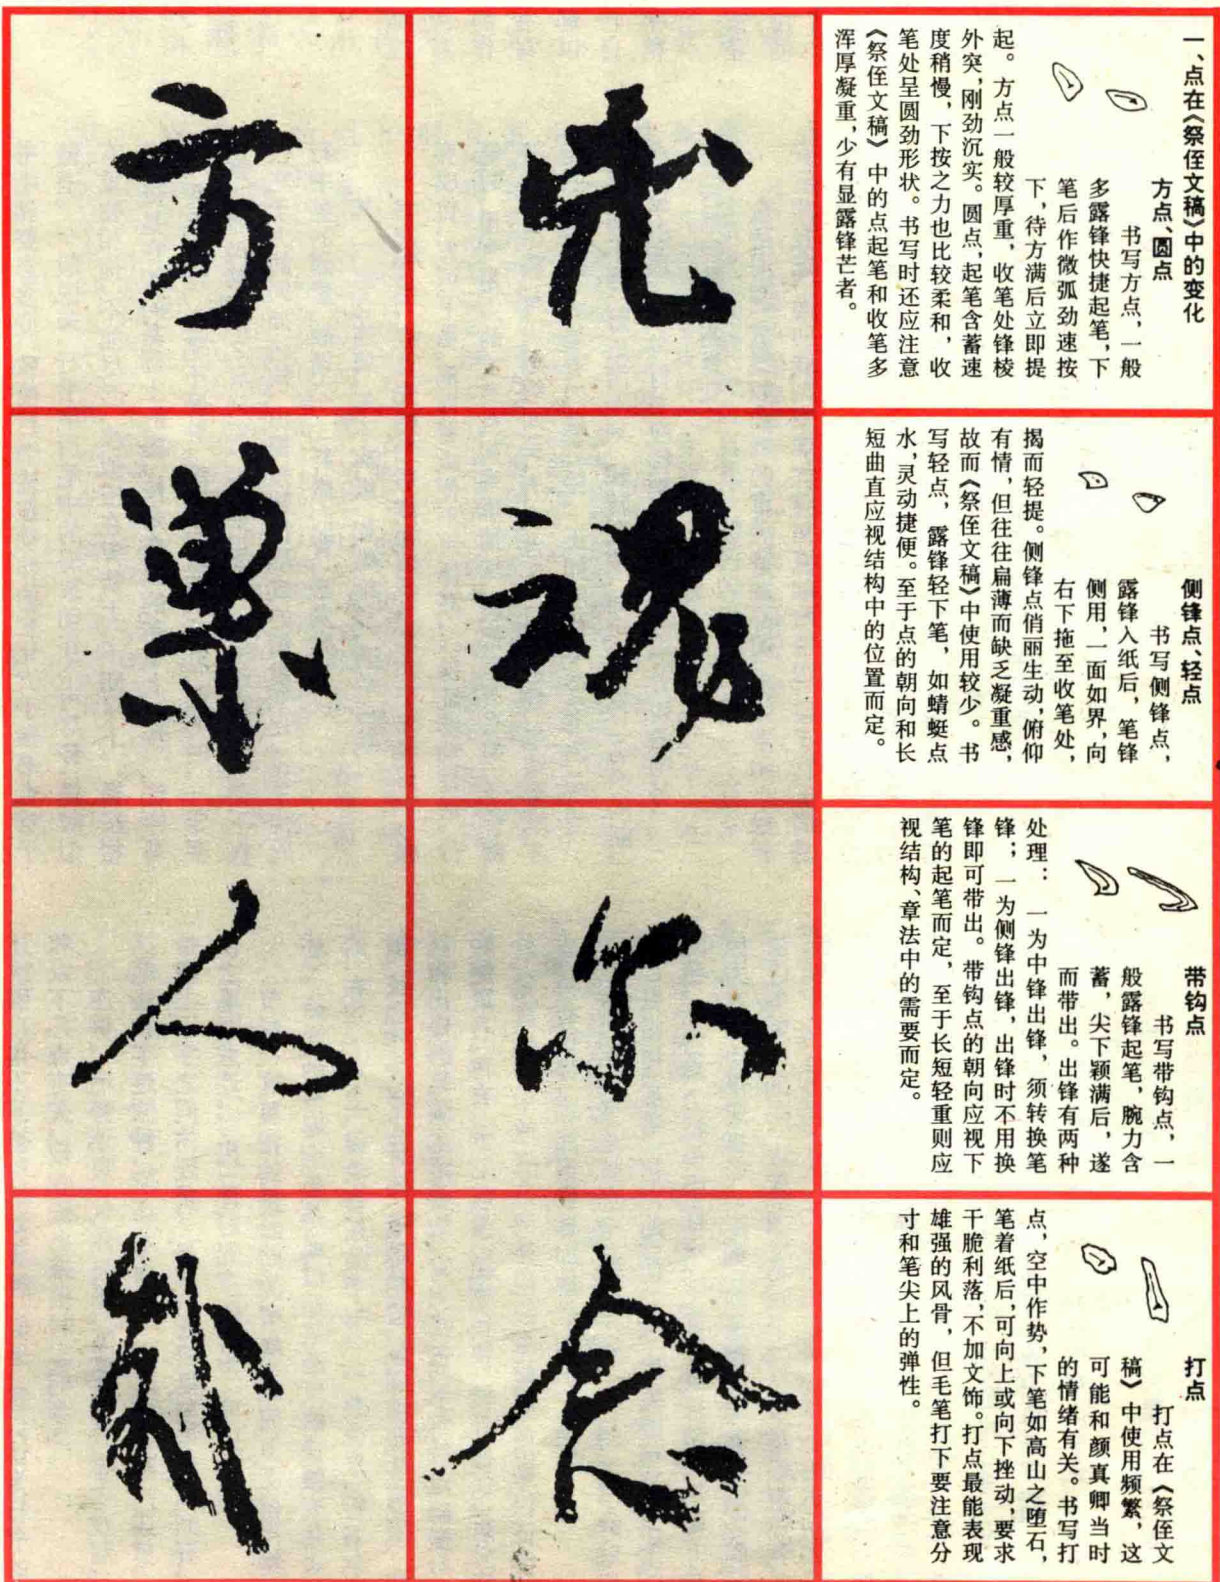 一、点在《祭侄文稿》中的变化
方点、圆点
书写方点，一般
多露锋快捷起笔，下
笔后作微弧劲速按
下，待方满后立即提
起。方点一般较厚重，收笔处锋棱
外突，刚劲沉实。圆点，起笔含蓄速
度稍慢，下按之力也比较柔和，收
笔处呈圆劲形状。书写时还应注意
《祭侄文稿》中的点起笔和收笔多
浑厚凝重，少有显露锋芒者。
光
方
侧锋点、轻点
书写侧锋点，
露锋入纸后，笔锋
侧用，一面如界，向
右下拖至收笔处，
揭而轻提。侧锋点俏丽生动，俯仰
有情，但往往扁薄而缺乏凝重感，
故而《祭侄文稿》中使用较少。书
写轻点，露锋轻下笔，如蜻蜓点
水，灵动捷便。至于点的朝向和长
短曲直应视结构中的位置而定。
魂
巢
带钩点
书写带钩点，一
般露锋起笔，腕力含
蓄，尖下颖满后，遂
而带出。出锋有两种
处理：一为中锋出锋，须转换笔
锋；一为侧锋出锋，出锋时不用换
锋即可带出。带钩点的朝向应视下
笔的起笔而定，至于长短轻重则应
视结构、章法中的需要而定。
尔
人
打点
打点在《祭侄文
稿》中使用频繁，这
可能和颜真卿当时
的情绪有关。书写打
点，空中作势，下笔如高山之堕石，
笔着纸后，可向上或向下挫动，要求
干脆利落，不加文饰。打点最能表现
雄强的风骨，但毛笔打下要注意分
寸和笔尖上的弹性。
念
哉